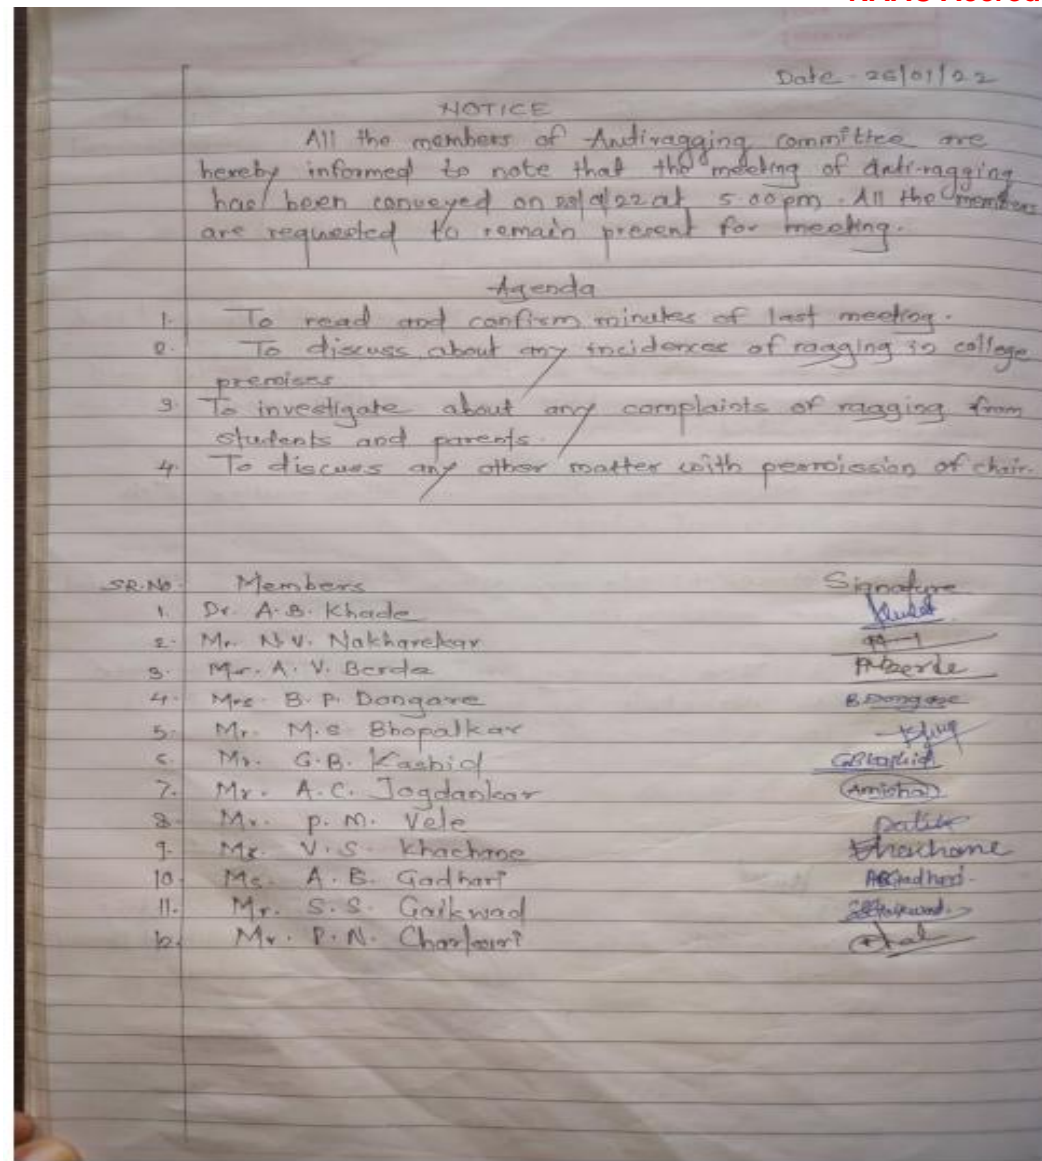 Date - 26/01/22
NOTICE
All the members of Antiragging committee are
hereby informed to note that the meeting of Anti-ragging
has been conveyed on at 5.00pm. All the members
are requested to remain present for meeting.
Agenda
1. To read and confirm minutes of last meeting.
2. To discuss about any incidences of ragging in college
premises
3. To investigate about any complaints of ragging from
students and parents.
4. To discuss any other matter with permission of chair.
SR.No. Members Signature
1. Dr. A.B. Khade
2. Mr. N.V. Nakharekar
3. Mr. A. V. Berde ABerde
4. Mrs. B. P. Dongare B.Dongare
5. Mr. M.S Bhopalkar
6. Mr. G.B. Kashid GBKashid
7. Mr. A.C. Jogdankar Amisha
8. Mr. P. M. Vele
9. Mr. V.S. Khachane Khachane
10. Ms. A.B. Gadhari ABGadhari
11. Mr. S.S. Gaikwad SSGaikwad
12. Mr. P.N.